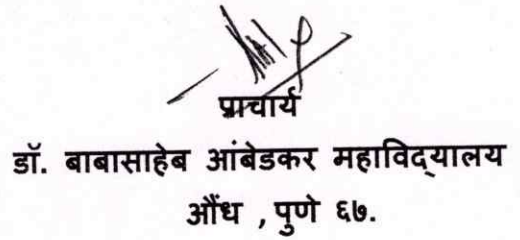 प्राचार्य
डॉ. बाबासाहेब आंबेडकर महाविद्‌यालय
औंध , पुणे ६७.